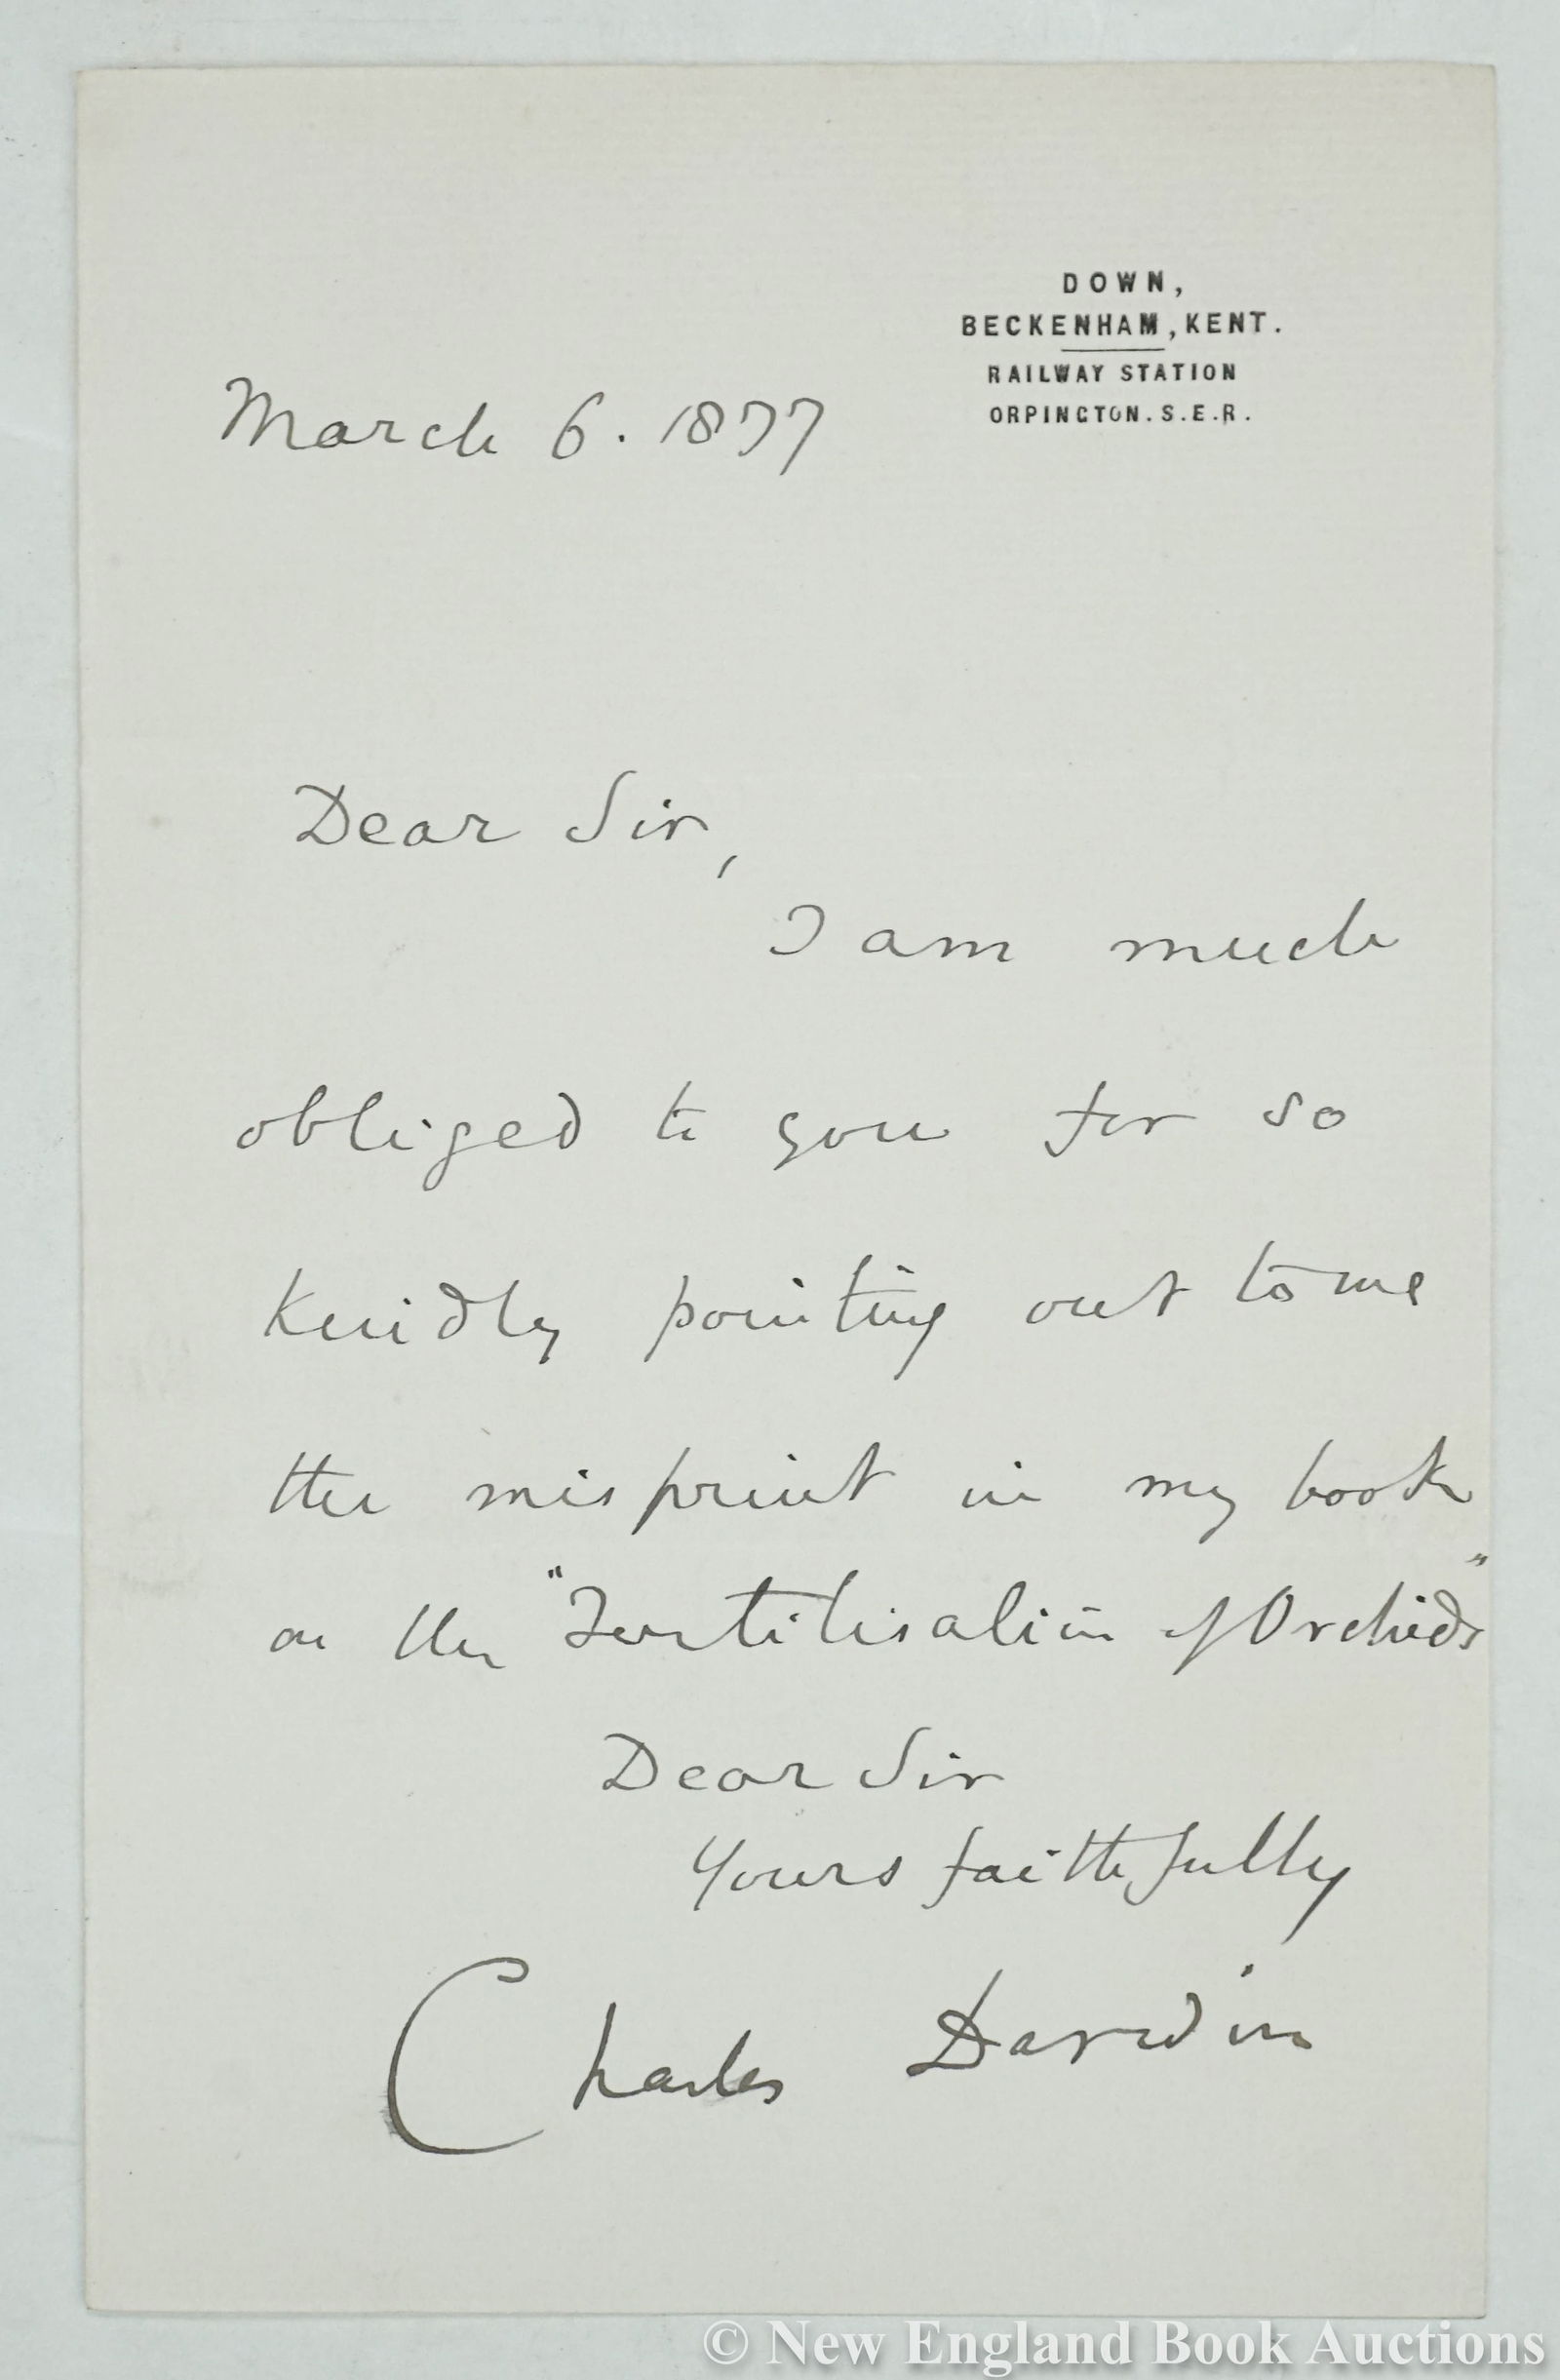 DOWN,
BECKENHAM, KENT.
RAILWAY STATION
ORPINGTON. S.E.R.
March 6. 1877
Dear Sir,
I am much
obliged to you for so
kindly pointing out to me
the misprint in my book
on the "Fertilisation of Orchids"
Dear Sir
Yours faithfully
Charles Darwin
© New England Book Auctions